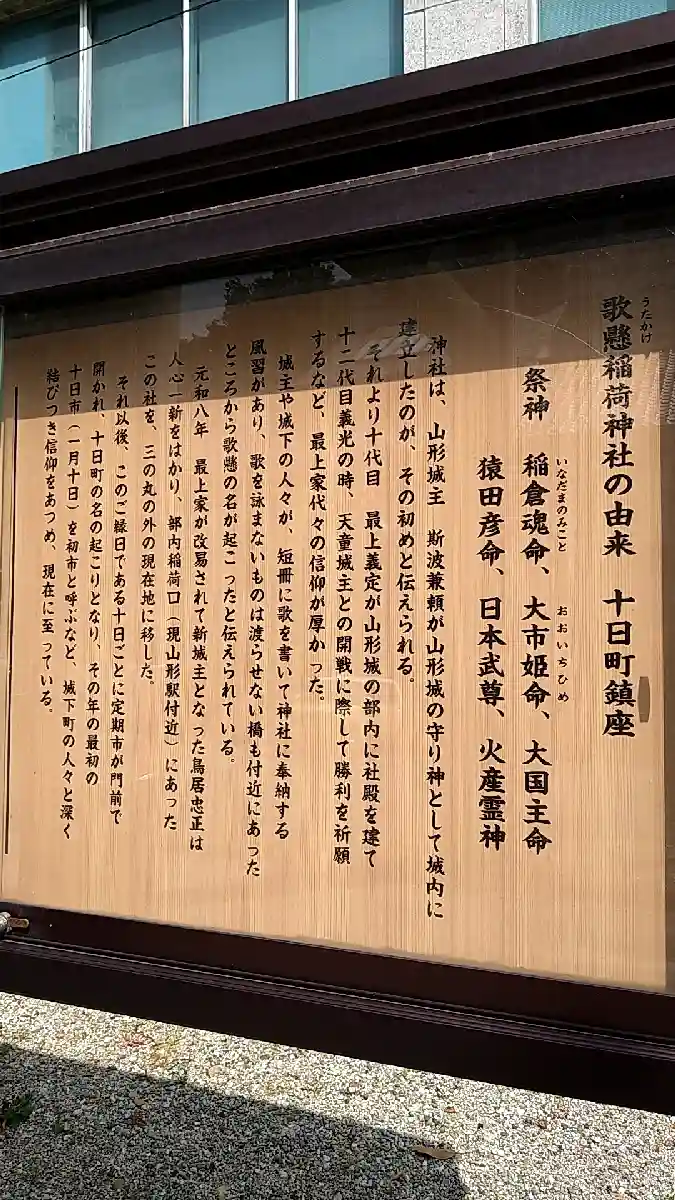 うたかけ
歌懸稲荷神社の由来 十日町鎮座
祭神 稲倉魂命、大市姫命、大国主命
いなだまのみこと おおいちひめ
猿田彦命、日本武尊、火産霊神
神社は、山形城主 斯波兼頼が山形城の守り神として城内に
建立したのが、その初めと伝えられる。
それより十代目 最上義定が山形城の部内に社殿を建て
十二代目義光の時、天童城主との開戦に際して勝利を祈願
するなど、最上家代々の信仰が厚かった。
城主や城下の人々が、短冊に歌を書いて神社に奉納する
風習があり、歌を詠まないものは渡らせない橋も付近にあった
ところから歌懸の名が起こったと伝えられている。
元和八年 最上家が改易されて新城主となった鳥居忠正は
人心一新をはかり、部内稲荷口（現山形駅付近）にあった
この社を、三の丸の外の現在地に移した。
それ以後、このご縁日である十日ごとに定期市が門前で
開かれ、十日町の名の起こりとなり、その年の最初の
十日市（一月十日）を初市と呼ぶなど、城下町の人々と深く
結びつき信仰をあつめ、現在に至っている。